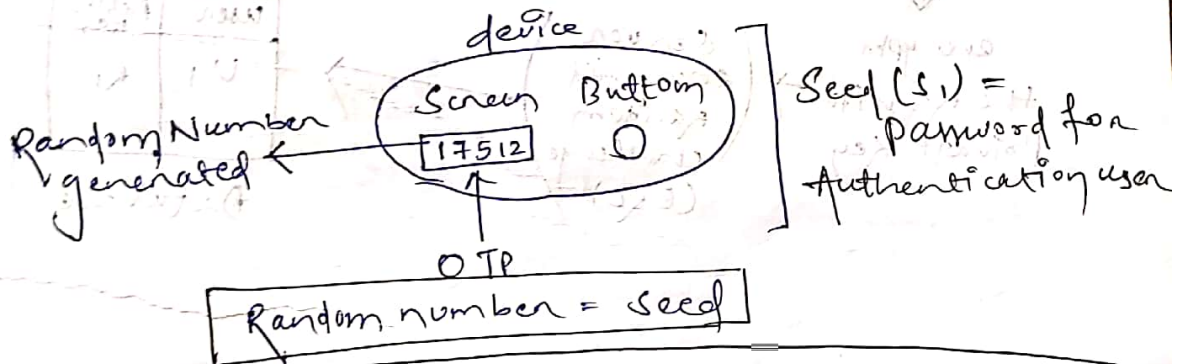 device
Screen Buttom
17512
Random Number
generated
OTP
Seed (S1) =
password for
Authentication user
Random number = seed